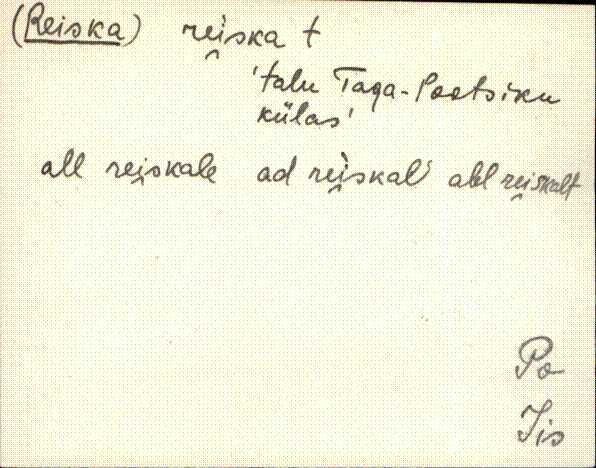 (Reiska) rei̯ska t
'talu Taga-Pootsiku
külas'
all rei̯skale ad reì̯skal' abl rei̯skalt
Po
Jis